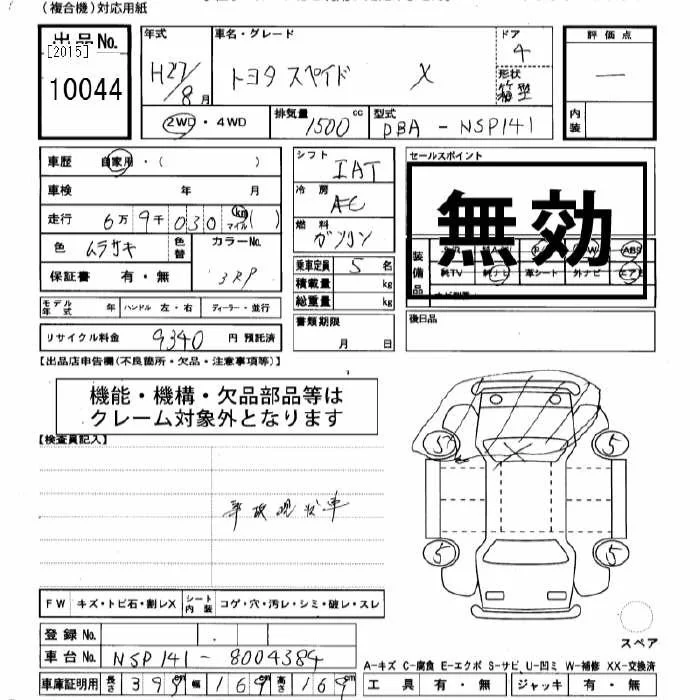 （複合機）対応用紙
出品No.
[2015]
10044
年式
H27/8月
車名・グレード
トヨタ スペイド X
ドア
4
形状
箱型
評価点
―
内装
2WD・4WD
排気量
1500 cc
型式
DBA - NSP141
車歴 自家用・( )
車検 年 月
走行 6万9千030 km マイル ( )
色 ムラサキ
色替
カラーNo.
3RP
保証書 有・無
モデル年式 年
ハンドル 左・右
ディーラー・並行
リサイクル料金 9340 円 預託済
シフト
IAT
冷房
AC
燃料
ガソリン
乗車定員 5 名
積載量 kg
総重量 kg
書類期限
月 日
セールスポイント
無効
装備品
ABS
純TV 純ナビ 革シート 外ナビ エアB
後日品
【出品店申告欄(不良箇所・欠品・注意事項等)】
機能・機構・欠品部品等は
クレーム対象外となります
【検査員記入】
事故現状車
5 5
5 5
FW キズ・トビ石・割レX
シート内装 コゲ・穴・汚レ・シミ・破レ・スレ
登録No.
車台No. NSP141 - 8004384
車庫証明用 長さ 399cm 幅 169cm 高さ 169cm
スペア
A-キズ C-腐食 E-エクボ S-サビ U-凹ミ W-補修 XX-交換済
工具 有・無 ジャッキ 有・無